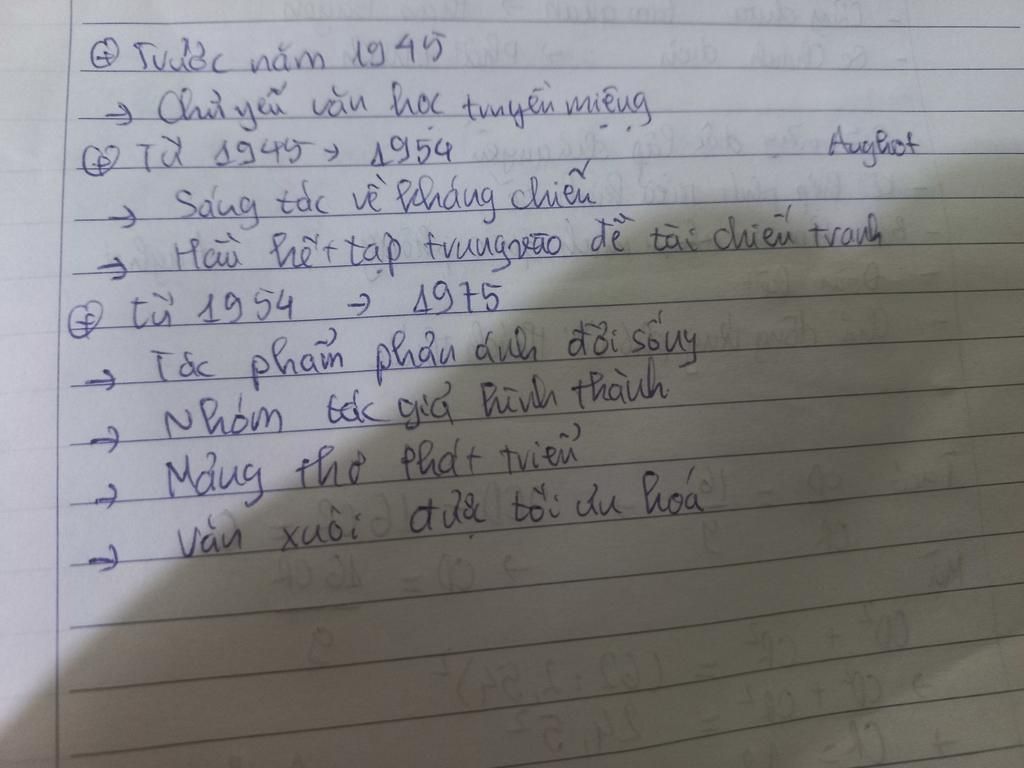 ⊕ Trước năm 1945
→ Chủ yếu văn học truyền miệng
⊕ Từ 1945 → 1954
→ Sáng tác về kháng chiến
→ Hầu hết tập trung vào đề tài chiến tranh
⊕ từ 1954 → 1975
→ Tác phẩm phản ánh đời sống
→ Nhóm tác giả hình thành
→ Mảng thơ phát triển
→ Văn xuôi được tối ưu hoá